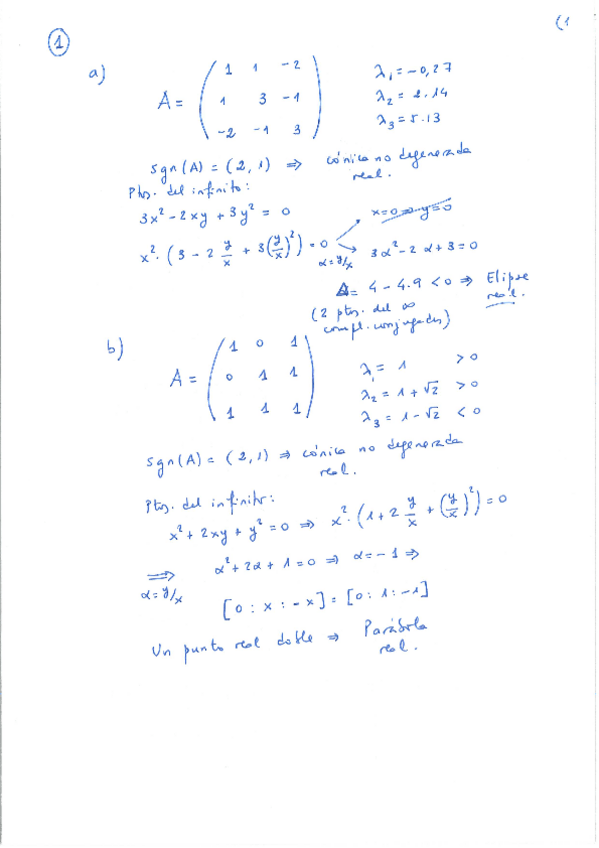 (1
1
a)
A = ( 1 1 -2
1 3 -1
-2 -1 3 )
λ₁ = -0,27
λ₂ = 2.14
λ₃ = 5.13
sgn(A) = (2, 1) ⇒ cónica no degenerada
real.
Ptos. del infinito:
3x² - 2xy + 3y² = 0
x² · (3 - 2 y/x + 3(y/x)²) = 0
x=0 ⇒ y=0
α = y/x
3α² - 2α + 3 = 0
Δ = 4 - 4.9 < 0 ⇒ Elipse
real.
(2 ptos. del ∞
compl. conjugados)
b)
A = ( 1 0 1
0 1 1
1 1 1 )
λ₁ = 1 > 0
λ₂ = 1 + √2 > 0
λ₃ = 1 - √2 < 0
sgn(A) = (2, 1) ⇒ cónica no degenerada
real.
Ptos. del infinito:
x² + 2xy + y² = 0 ⇒ x² · (1 + 2 y/x + (y/x)²) = 0
⇒ α² + 2α + 1 = 0 ⇒ α = -1 ⇒
α = y/x
[0 : x : -x] = [0 : 1 : -1]
Un punto real doble ⇒ Parábola
real.